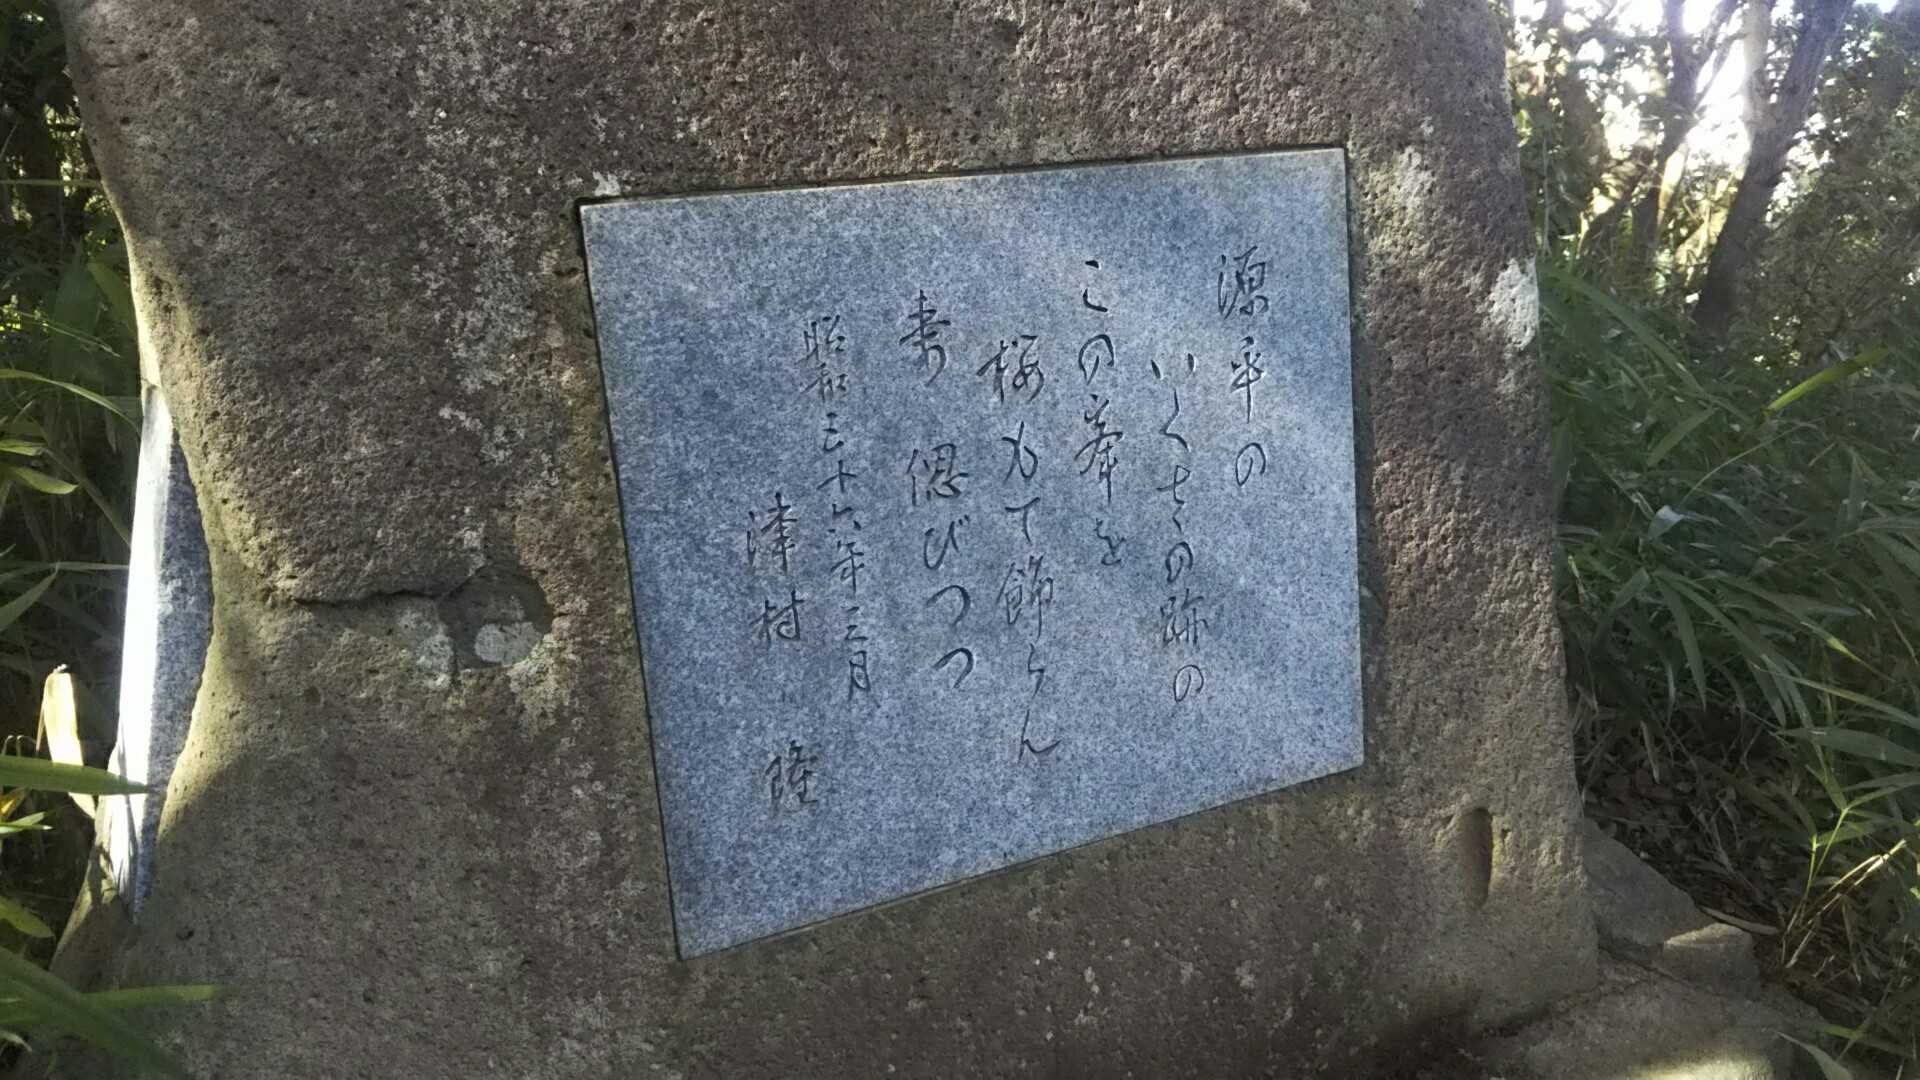 源平の
いくさの跡の
この峯を
桜もて飾らん
妻偲びつつ
昭和三十六年三月
津村